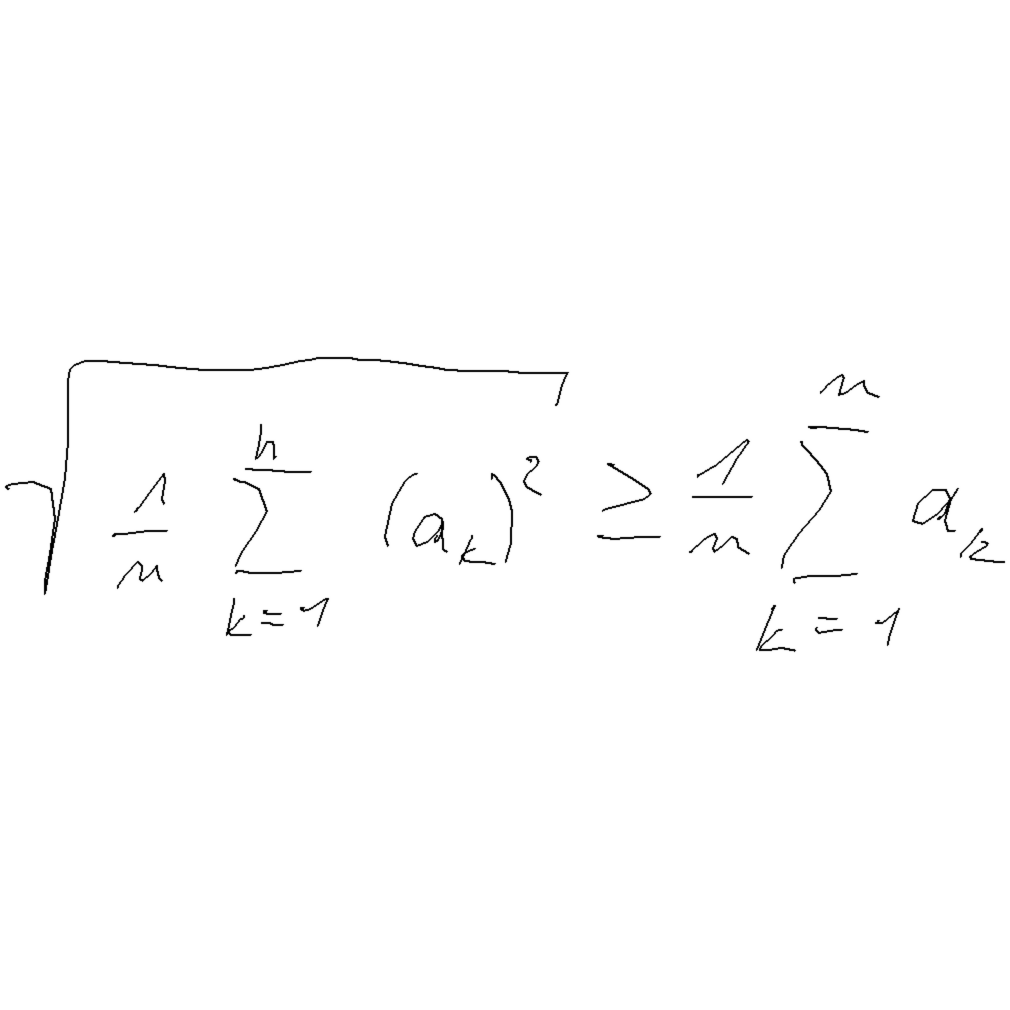 \sqrt{\frac{1}{n} \sum_{k=1}^{n} (a_k)^2} \geq \frac{1}{n} \sum_{k=1}^{n} a_k